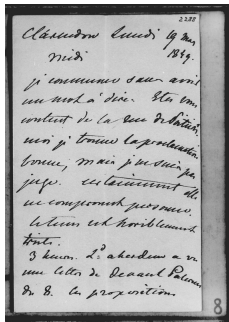 2288
Clarendon Lundi 19 mars
midi 1849.
je commence sans avoir
un mot à dire. Etes vous
content de la
moi je trouve la proclamation
bonne, mais je ne suis pas
juge. certainement elle
ne compromet personne.
Le tems est horriblement
triste.
3 heures. Ld aberdeen a vu
une lettre de
du 8. les propositions
8